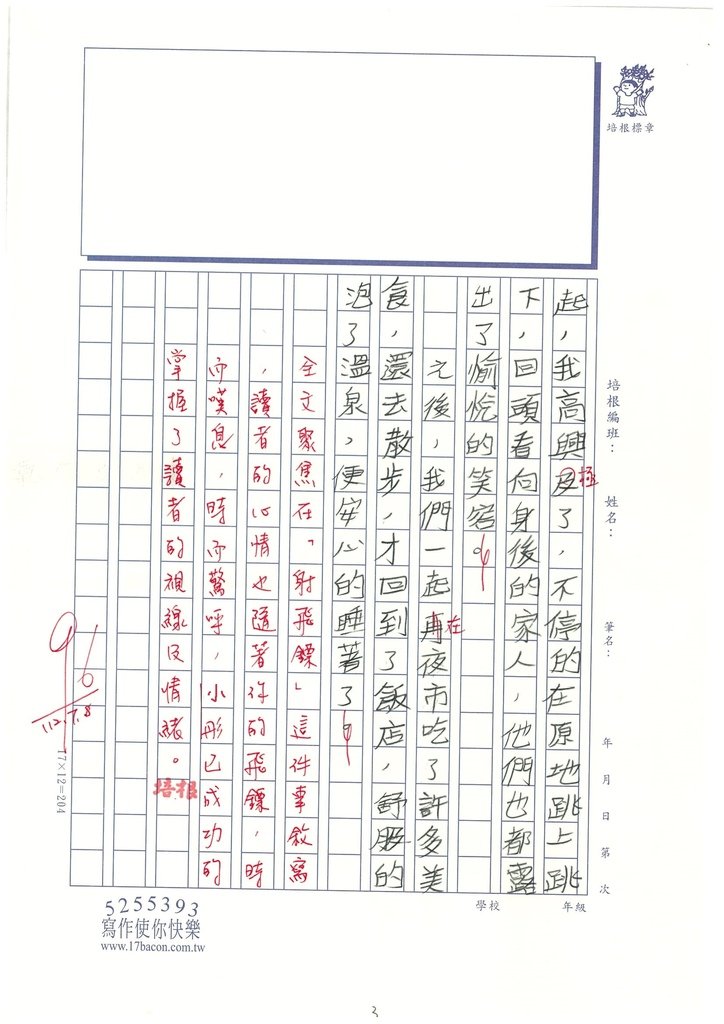 培根標章
培根編班：
姓名：
筆名：
年 月 日 第 次
起，我高興及了，不停的在原地跳上跳
極
下，回頭看向身後的家人，他們也都露
出了愉悅的笑容。
之後，我們一起再夜市吃了許多美
在
食，還去散步，才回到了飯店，舒服的
泡了溫泉，便安心的睡著了。
全文聚焦在「射飛鏢」這件事敘寫
，讀者的心情也隨著你的飛鏢，時
而嘆息，時而驚呼，小彤已成功的
掌握了讀者的視線及情緒。
培根
96
112.7.8
17×12=204
學校
年級
5255393
寫作使你快樂
www.17bacon.com.tw
3